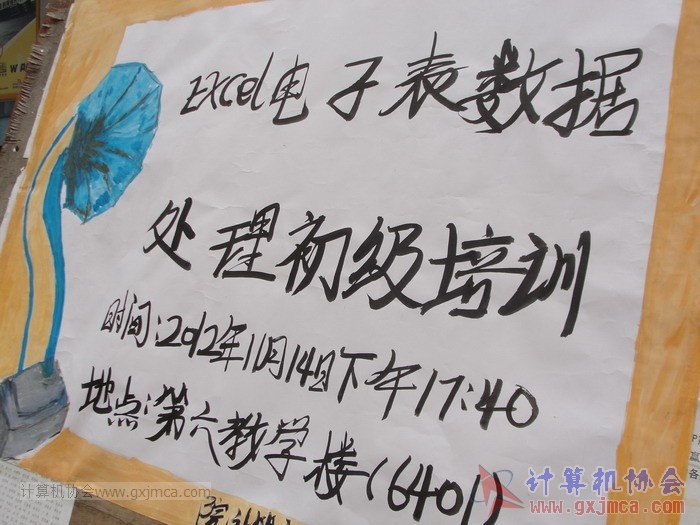 Excel电子表数据
处理初级培训
时间:2012年11月14日下午17:40
地点:第六教学楼(6401)
计算机协会www.gxjmca.com
计算机协会
www.gxjmca.com